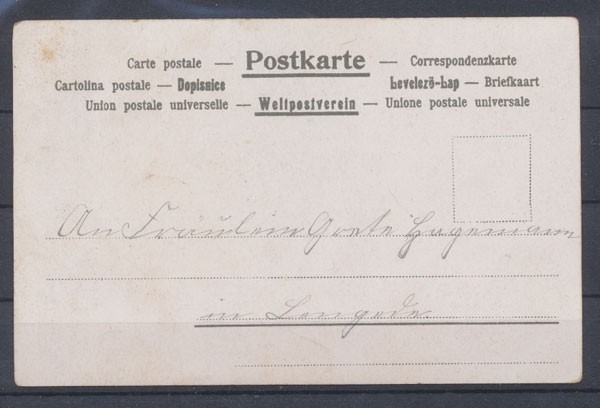 Carte postale — Postkarte — Correspondenzkarte
Cartolina postale — Dopisnice Levelező-Lap — Briefkaart
Union postale universelle — Weltpostverein — Unione postale universale
An Fräulein Grete Hagemann
in Lengede.